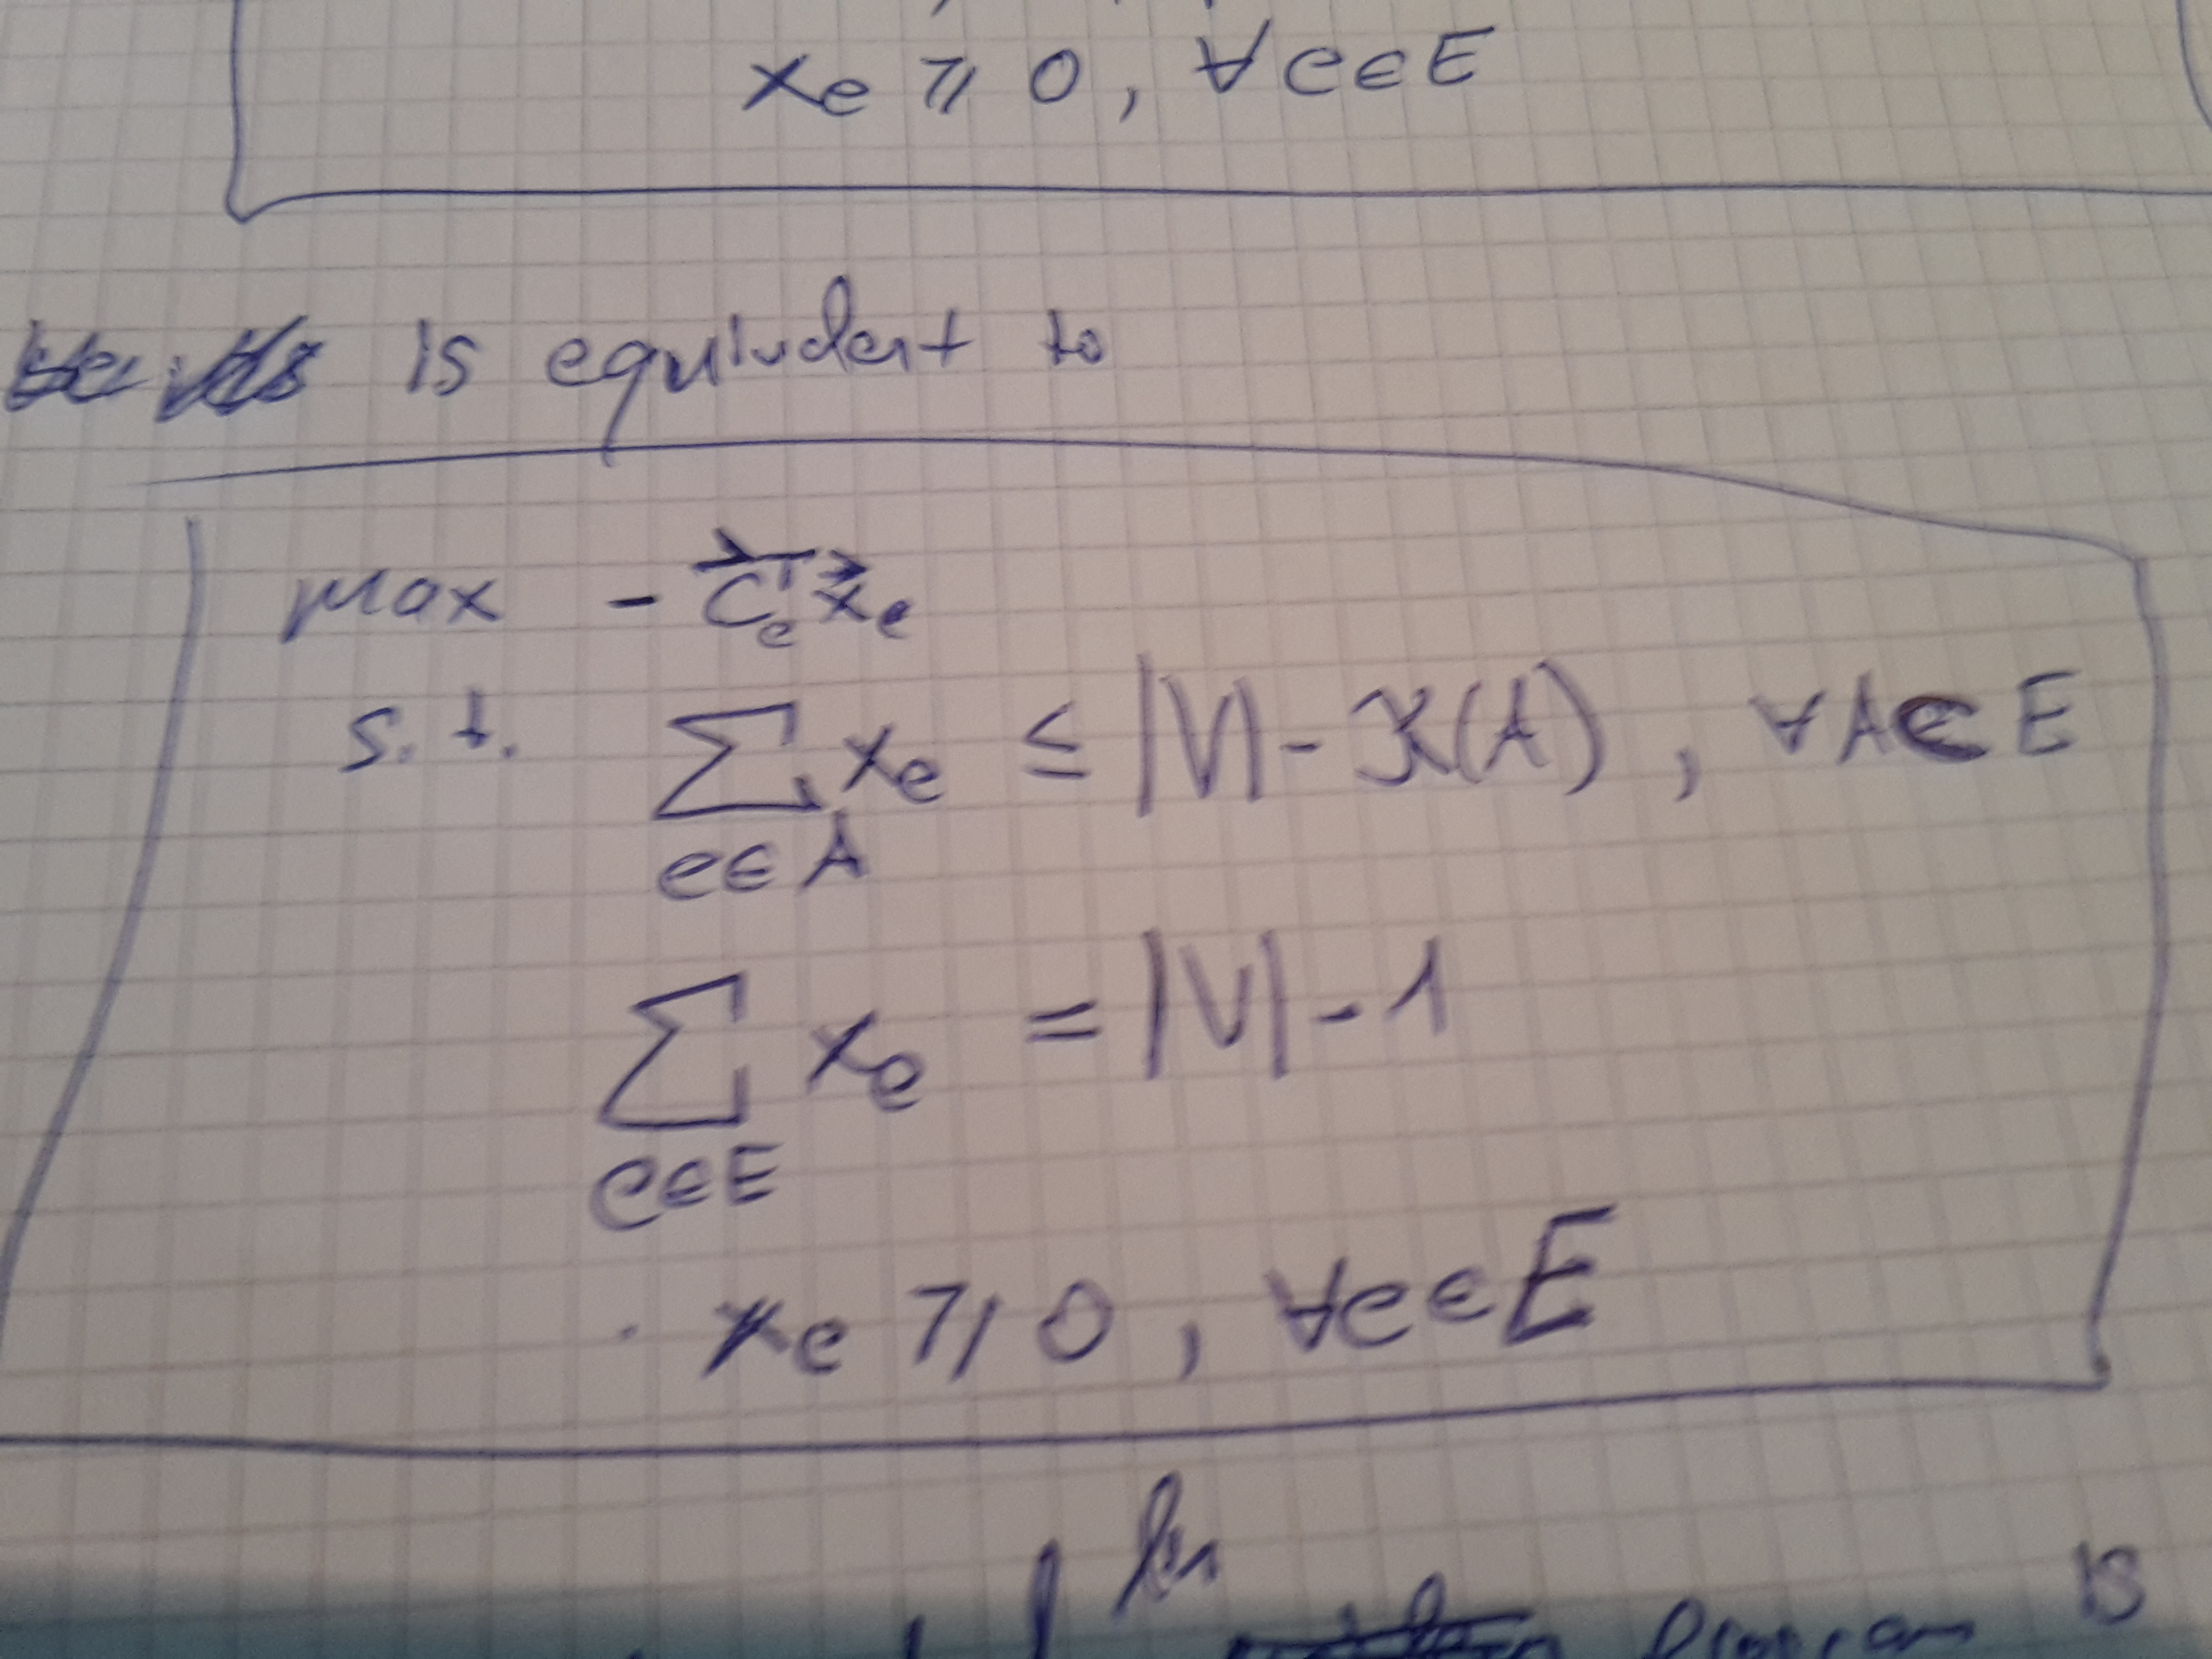 xₑ ⩾ 0, ∀e∈E
is equivalent to
max -c⃗ₑᵀ x⃗ₑ
s.t. ∑ xₑ ≤ |V| - K(A), ∀A⊂E
e∈A
∑ xₑ = |V| - 1
e∈E
xₑ ⩾ 0, ∀e∈E